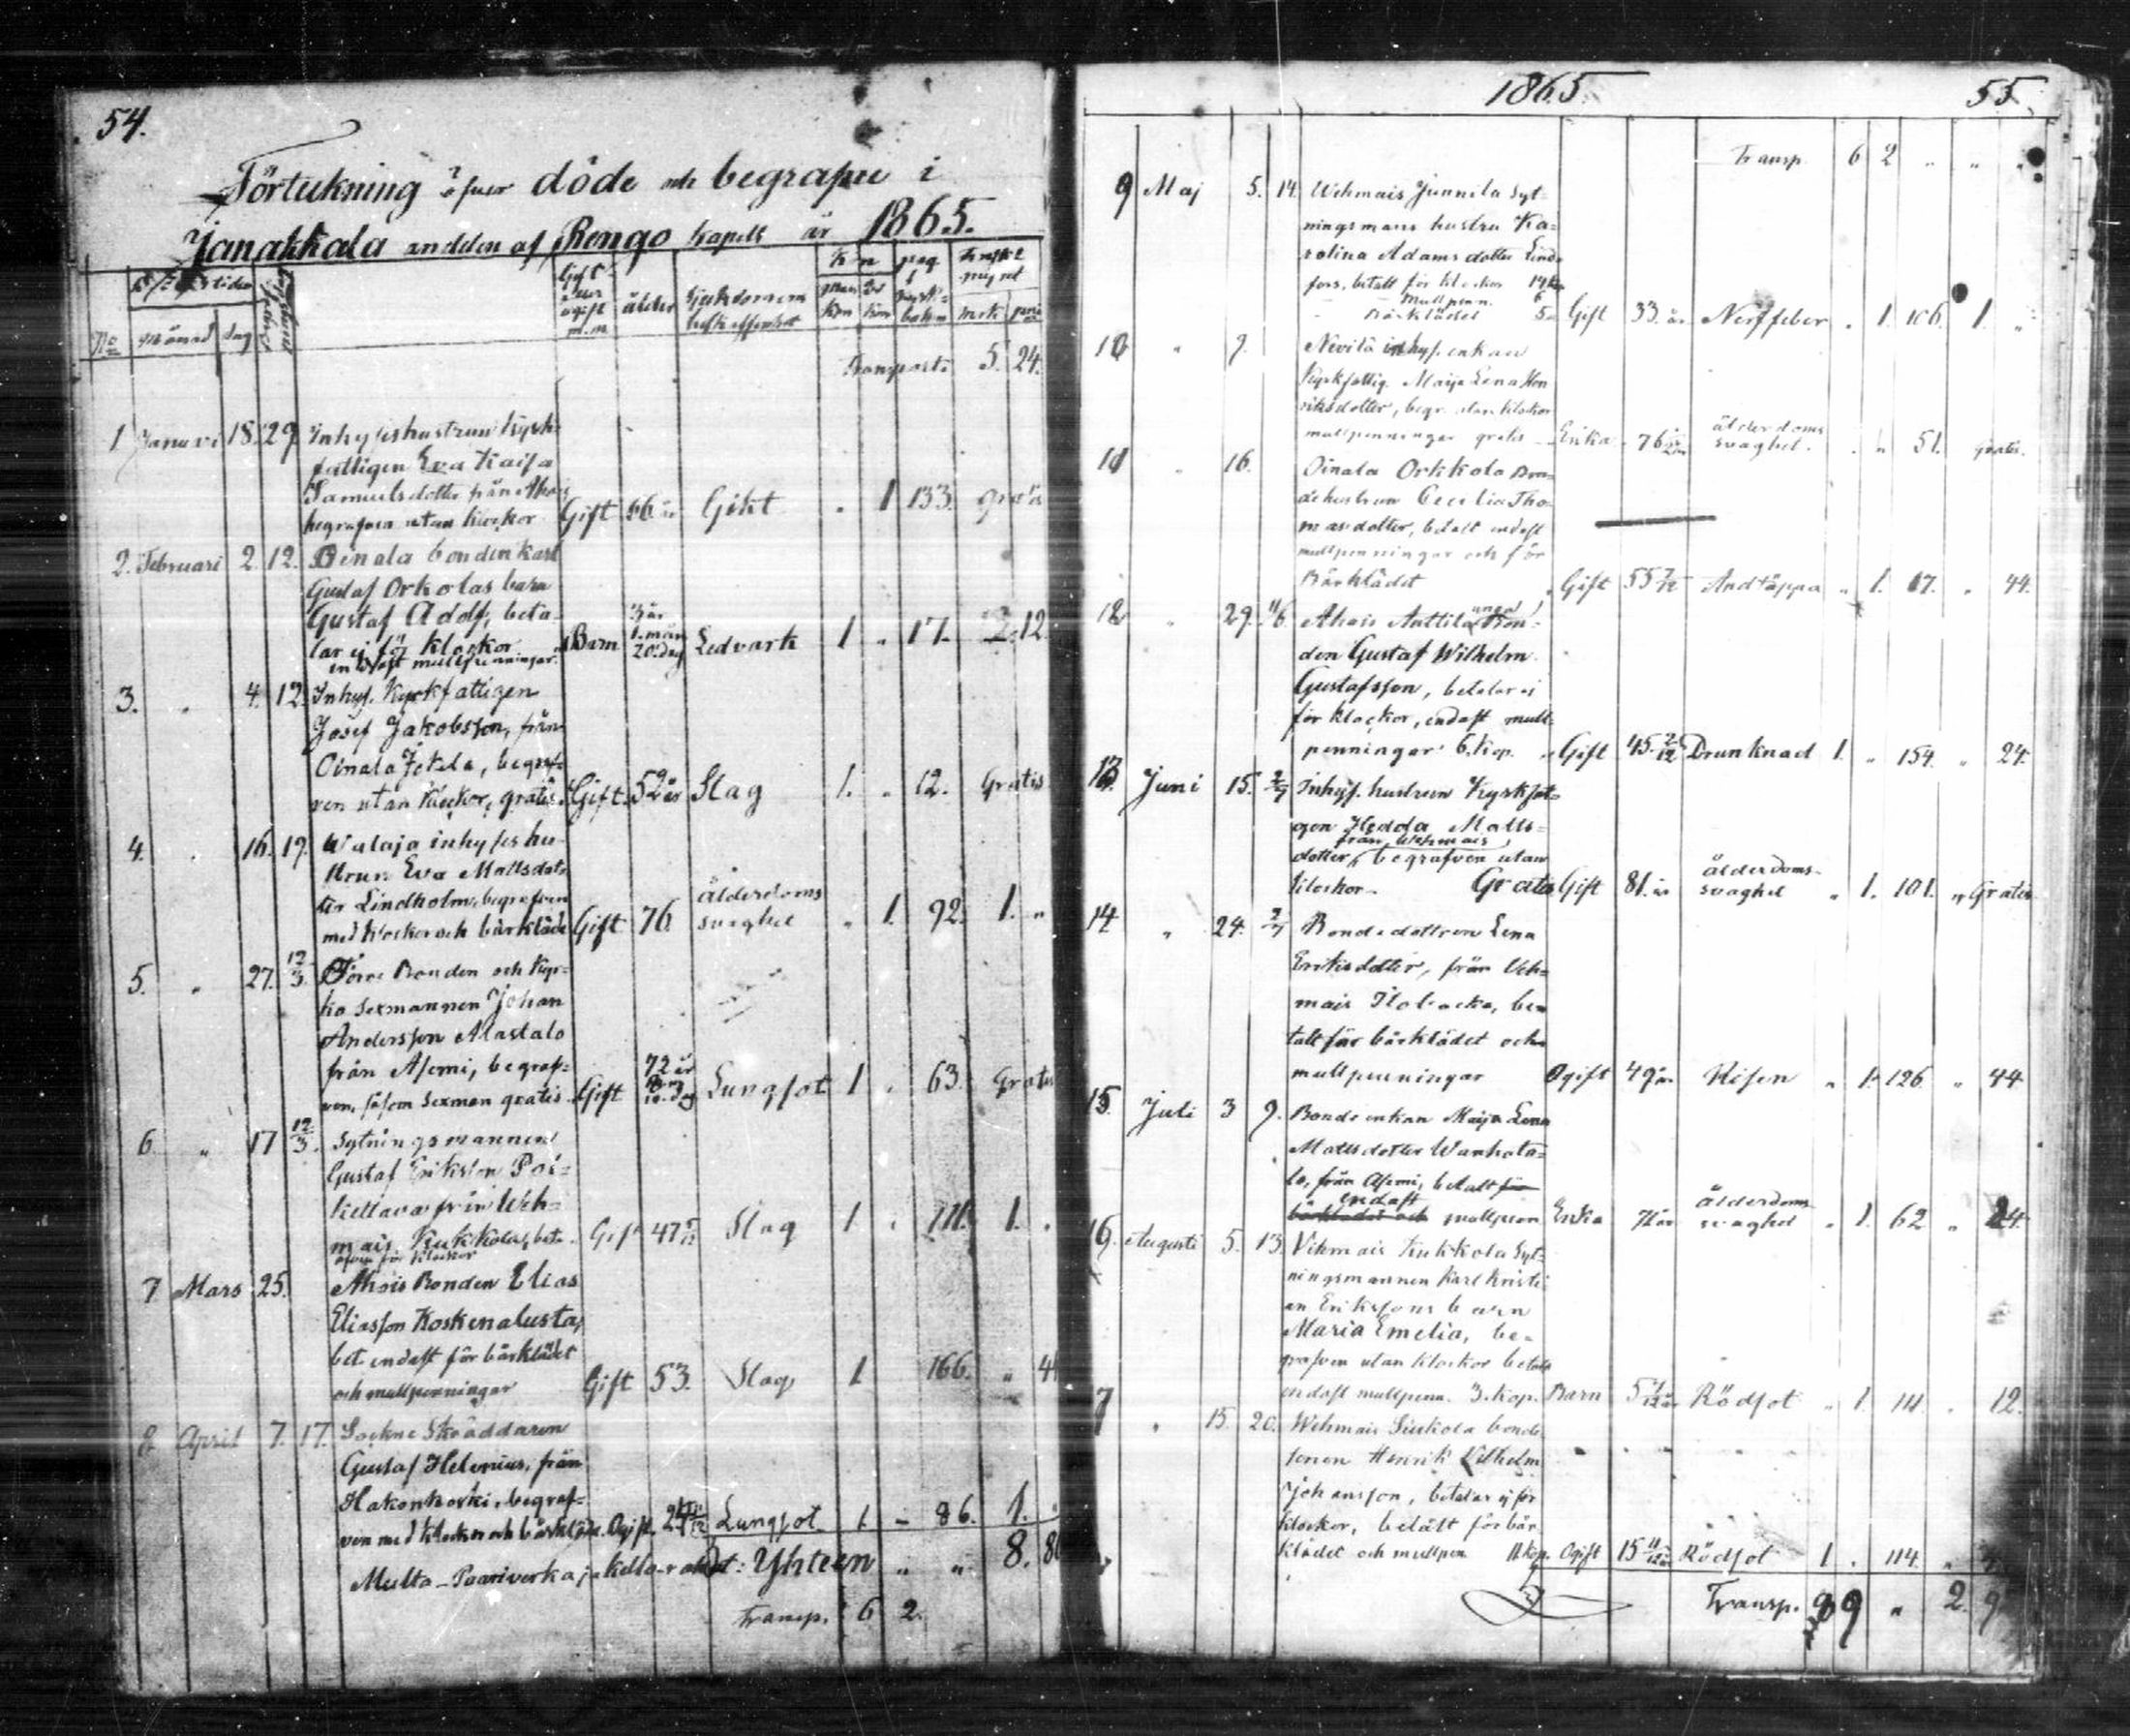 54.
Förtekning öfver döde och begrafne i
Janakkala andelen af Rengo kapell år 1865.
No månad dag
Gift eller ogift m.m
ålder
Sjukdomens beskaffenhet
kön
man kön
qv kön
pag i kyrkobokn
mrk
Transport: 5. 24.
1 Januari 18. 29. Inhyseshustrun Kyrk-
fattigen Eva Kaisa
Samuelsdotter från Ahois
begrafven utan klockor Gift 66 år Gikt " 1 133. gratis
2. Februari 2. 12. Oinala bonden Karl
Gustaf Orkolas barn
Gustaf Adolf, beta-
lar ej för klockor
endast mullpenningar. Barn 3 år 1. mån 20. dag Ledvärk 1 " 17. 2. 12
3. " 4. 12. Inhys. Kyrkfattigen
Josef Jakobsson, från
Oinala Jetela, begraf-
ven utan klockor, gratis Gift. 52 år Slag 1. " 12. Gratis
4. " 16. 19. Walaja inhyses hu-
strun Eva Mattsdot-
ter Lindholm, begrafven
med klockor och bårkläde Gift 76. ålderdoms
svaghet " 1. 92. 1. "
5. " 27. 12/3 Förre Bonden och Kyr-
ko sexmannen Johan
Andersson Alastalo
från Asemi, begraf-
ven, såsom sexman gratis Gift 72 år Lungsot 1 " 63. Gratis
6. " 17 12/3. Sytningsmannen
Gustaf Eriksson Poi-
kettava från Weh-
mais Kukkola, beta-
för klockor Gift 47 Slag 1 " 111. 1. "
7 Mars 25. Ahois Bonden Elias
Eliasson Koskenalusta,
bet. endast för bårklädet
och mullpenningar Gift 53. Slag 1 166. " 44
8 April 7. 17. Sockne Skräddaren
Gustaf Helenius, från
Hakonkorki, begraf-
ven med klockor och bårkläde. Ogift. 24 Lungsot 1. – 86. 1.
Multa-Paariverka ja kello-rahat: Yhteen " " 8. 80
Transp. 6 2.
1865 55
Transp. 6 2 " " "
9 Maj 5. 14. Wehmais Junnila Syt-
ningsmans hustru Ka-
rolina Adamsdotter Lind-
fors, betalt för klockor
mullpenn. 6
bårklädet Gift 33. år Nerffeber " 1. 106. 1. "
10 " 9. Nevilä inhys. enkan
Kyrkfattig. Maija Lena Hen-
riksdotter, begr. utan klockor
mullpenningar gratis Enka 76 ålderdoms
svaghet. " " 51. gratis.
11 " 16. Oinala Orkkola Bon-
dehustrun Cecilia Tho-
masdotter, betalt endast
mullpenningar och för
Bårklädet Gift 55 7/12 Andtäppa " 1. 17. " 44.
12 " 29. 11/6 Ahois Anttila unga Bon-
den Gustaf Wilhelm
Gustafsson, betalar ej
för klockor, endast mull-
penningar 6. kop. Gift 45. 2/12 Drunknad 1. " 154. " 24.
13. Juni 15. 2/7 Inhys. hustrun Kyrkfat-
gen Hedda Matts-
från Wehmais
dotter, begrafven utan
klockor. Gratis Gift 81. år ålderdoms-
svaghet " 1. 101. " Gratis
14 " 24. 2/7 Bondedottren Lena
Eriksdotter, från Veh-
mais Ilobacka, be-
talt för bårklädet och
mullpenningar Ogift 49 år Risen " 1. 126. " 44.
15. Juli 3 9. Bonde enkan Maija Lena
Mattsdotter Wanhata-
lo, från Asemi, betalt för
endast
bårklädet och mullpenn Enka 71 år ålderdoms
svaghet " 1. 62 " 24.
16. Augusti 5. 13. Vihmais Kukkola Syt-
ningsmannen Karl Kristi-
an Erikssons barn
Maria Emelia, be-
grafven utan klockor betalt
endast mullpenn. 3. kop. Barn 5 Rödsot " 1. 111. " 12.
7 " 15. 20. Wehmais Siukola bonde-
sonen Henrik Vilhelm
Johansson, betalar ej för
klockor, betalt för bår-
klädet och mullpen 11 kop. Ogift 15 11/12 år Rödsot 1. " 114. "
Transp. 9 " 2. 9